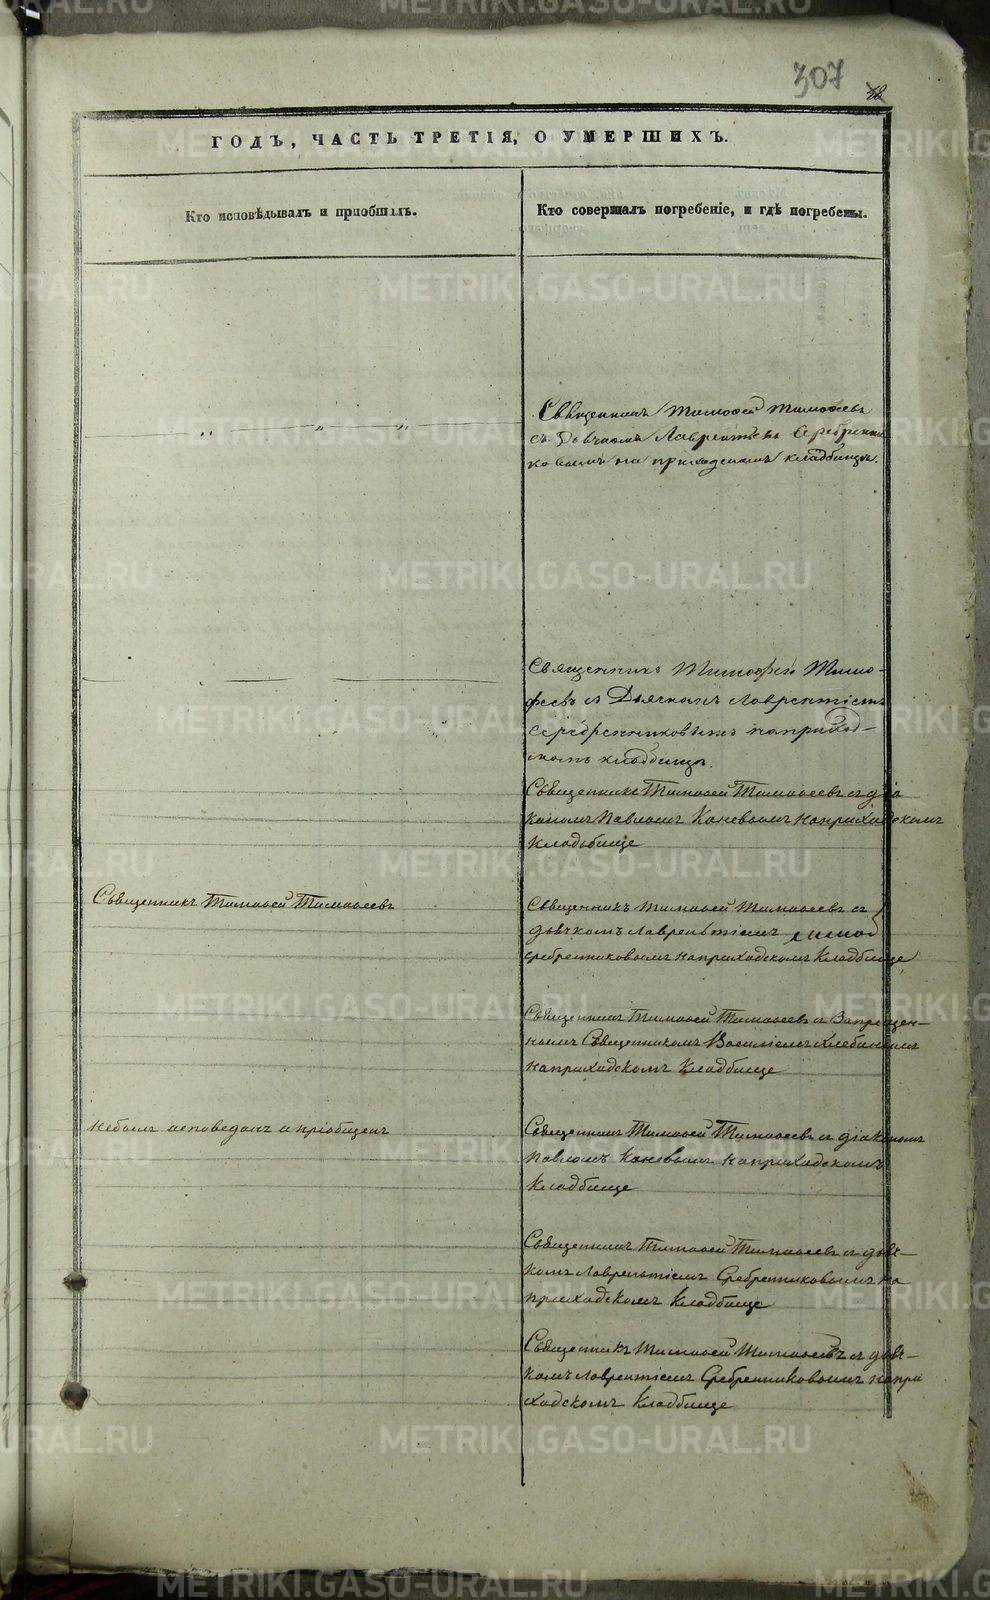 307
ГОДЪ, ЧАСТЬ ТРЕТІЯ, О УМЕРШИХЪ.
Кто исповѣдывалъ и пріобщалъ.
Кто совершалъ погребеніе, и гдѣ погребены.
Священникъ Тимофей Тимофеевъ
съ Дьячкомъ Лаврентіемъ Серебренни
ковымъ на приходскомъ кладбищѣ.
Священникъ Тимофей Тимо-
феевъ съ Дьячкомъ Лаврентіемъ
Серебренниковымъ на приход-
скомъ кладбищѣ.
Священникъ Тимофей Тимофеевъ съ діа
кономъ Павломъ Каневымъ на приходскомъ
кладбище
Священникъ Тимофей Тимофеевъ
Священникъ Тимофей Тимофеевъ съ
дьячкомъ Лаврентіемъ
Сребрениковымъ на приходскомъ кладбище
Священникъ Тимофей Тимофеевъ съ Запрещен-
нымъ Священникомъ Василіемъ Хлебинымъ
на приходскомъ Кладбище
небылъ исповеданъ и пріобщенъ
Священникъ Тимофей Тимофеевъ съ діакономъ
Павломъ Каневымъ на приходскомъ
Кладбище
Священникъ Тимофей Тимофеевъ съ дьяч-
комъ Лаврентіемъ Сребрениковымъ на
приходскомъ Кладбище
Священникъ Тимофей Тимофеевъ съ дьяч-
комъ Лаврентіемъ Сребренниковымъ на при
ходскомъ Кладбище
METRIKI.GASO-URAL.RU